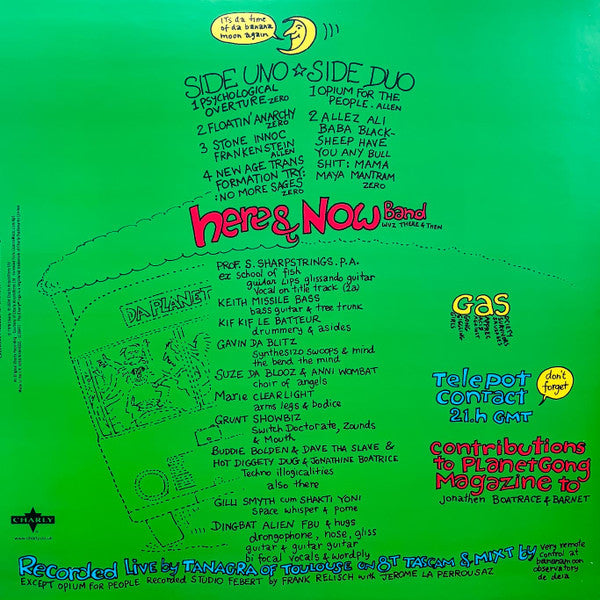 ITS da time
of da banana
moon again
SIDE UNO ☆ SIDE DUO
1 PSYCHOLOGICAL
OVERTURE ZERO
2 FLOATIN' ANARCHY
ZERO
3 STONE INNOC
FRANKENSTEIN
ALLEN
4 NEW AGE TRANS
FORMATION TRY:
:NO MORE SAGES
ZERO
1 OPIUM FOR THE
PEOPLE. ALLEN
2 ALLEZ ALI
BABA BLACK-
SHEEP HAVE
YOU ANY BULL
SHIT: MAMA
MAYA MANTRAM
ZERO
here & NOW Band
WUZ THERE & THEN
PROF. S. SHARPSTRINGS. P.A.
ex school of fish
guitar LIPS glissando guitar
Vocal on title track (2a)
KEITH MISSILE BASS
bass guitar & tree trunk
KIF KIF LE BATTEUR
drummery & asides
GAVIN DA BLITZ
Synthesizo swoops & mind
the bend the mind
SUZE DA BLOOZ & ANNI WOMBAT
choir of angels
Marie CLEARLIGHT
arms legs & bodice
GRUNT SHOWBIZ
Switch Doctorate, Zounds
& Mouth
BUDDIE BOLDEN & DAVE THA SLAVE &
HOT DIGGETY DUG & JONATHINE BOATRICE
Techno illogicalities
also there
GILLI SMYTH cum SHAKTI YONI
Space whisper & pome
DINGBAT ALIEN FBU & hugs
drongophone, nose, gliss
guitar & guitar guitar
bi focal vocals & wordply
DA PLANET
GAS
Telepot
contact
21.h GMT
don't
forget
contributions
to PLANETGONG
Magazine to
Jonathen BOATRACE & BARNET
CHARLY
www.charly.co.uk
Recorded Live by TANAGRA OF TOULOUSE on 8T TASCAM & MIXT by
very remote
control at
bananamoon
observatory
de deia
EXCEPT OPIUM FOR PEOPLE Recorded STUDIO FEBERT by FRANK RELISCH with JEROME LA PERROUSAZ